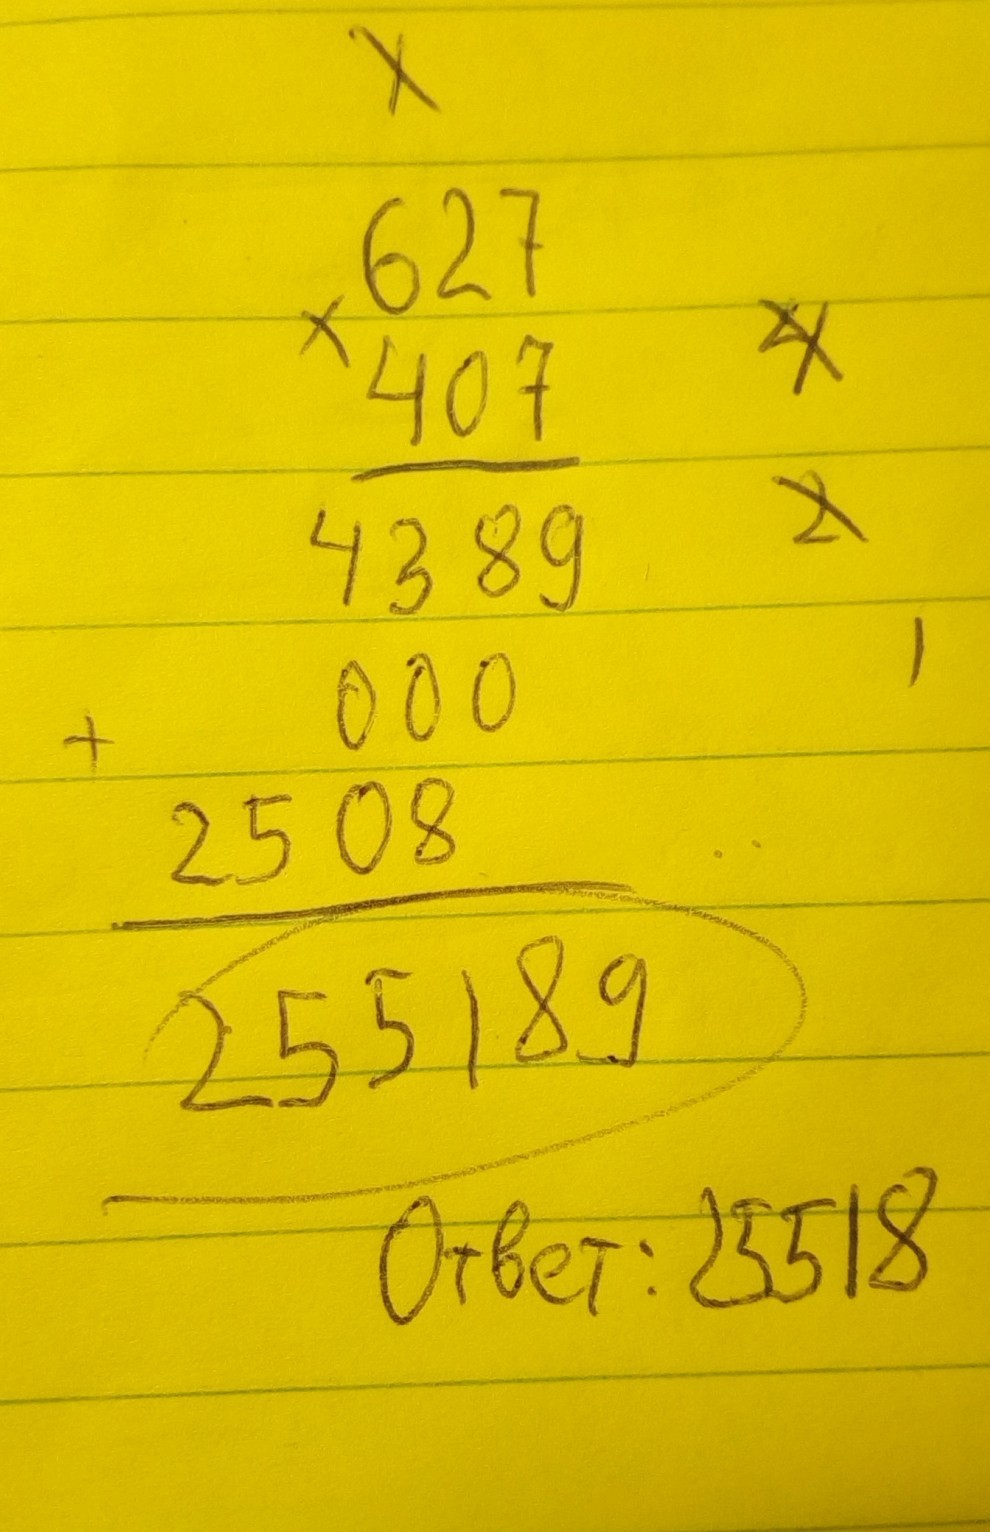 627
× 407
4389
000
+
2508
255189
Ответ: 25518